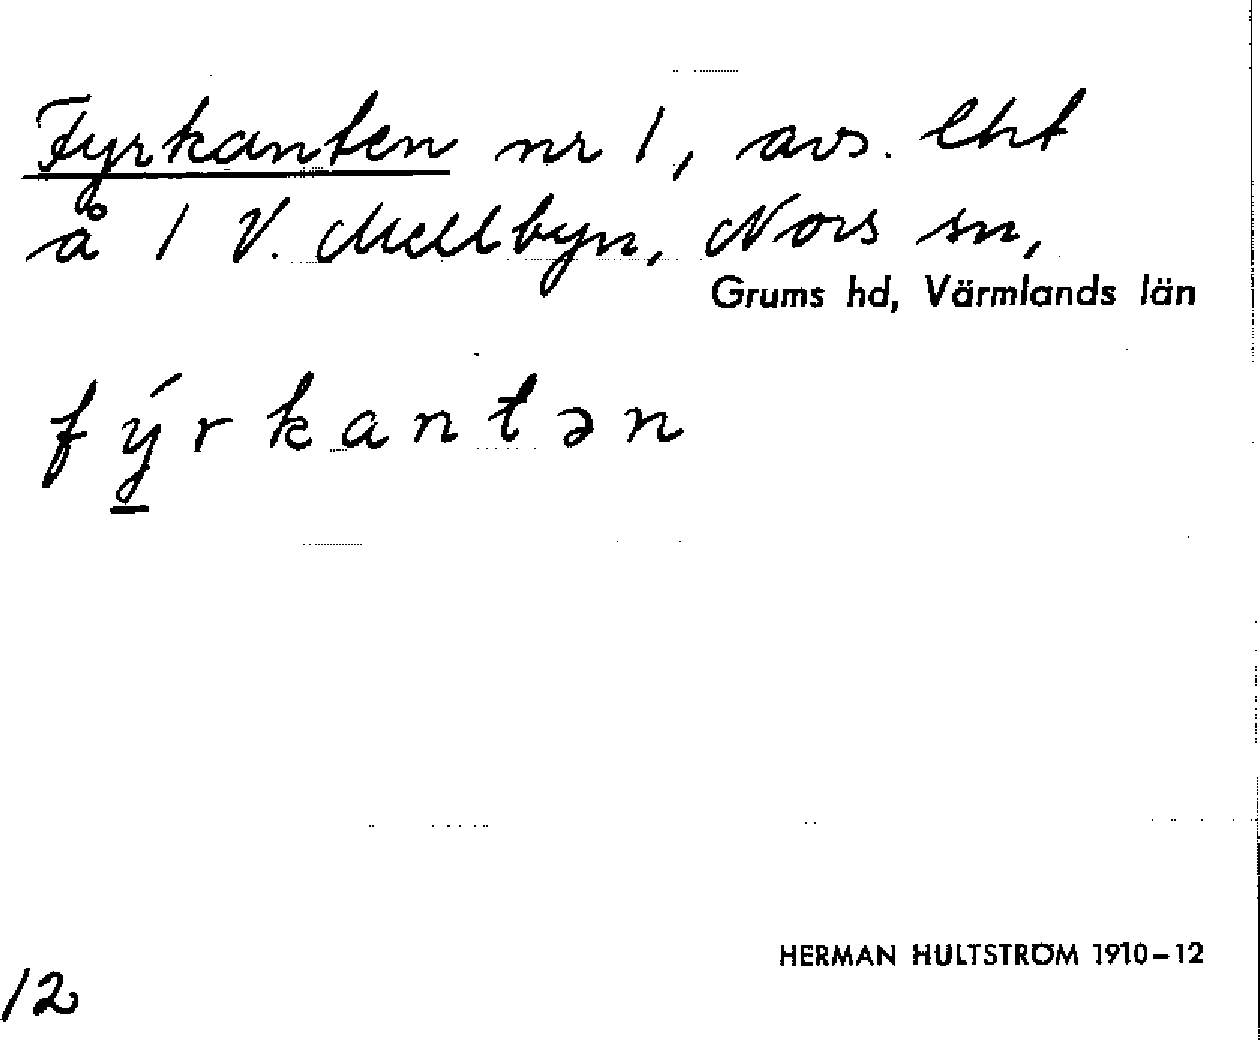 Fyrkanten nr 1, avs. lht
å 1 V. Mellbyn, Nors sn,
Grums hd, Värmlands län
fýrkantən
HERMAN HULTSTRÖM 1910–12
12